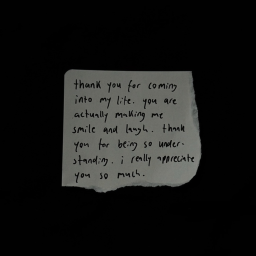 thank you for coming
into my life. you are
actually making me
smile and laugh. thank
you for being so under-
standing. i really appreciate
you so much.